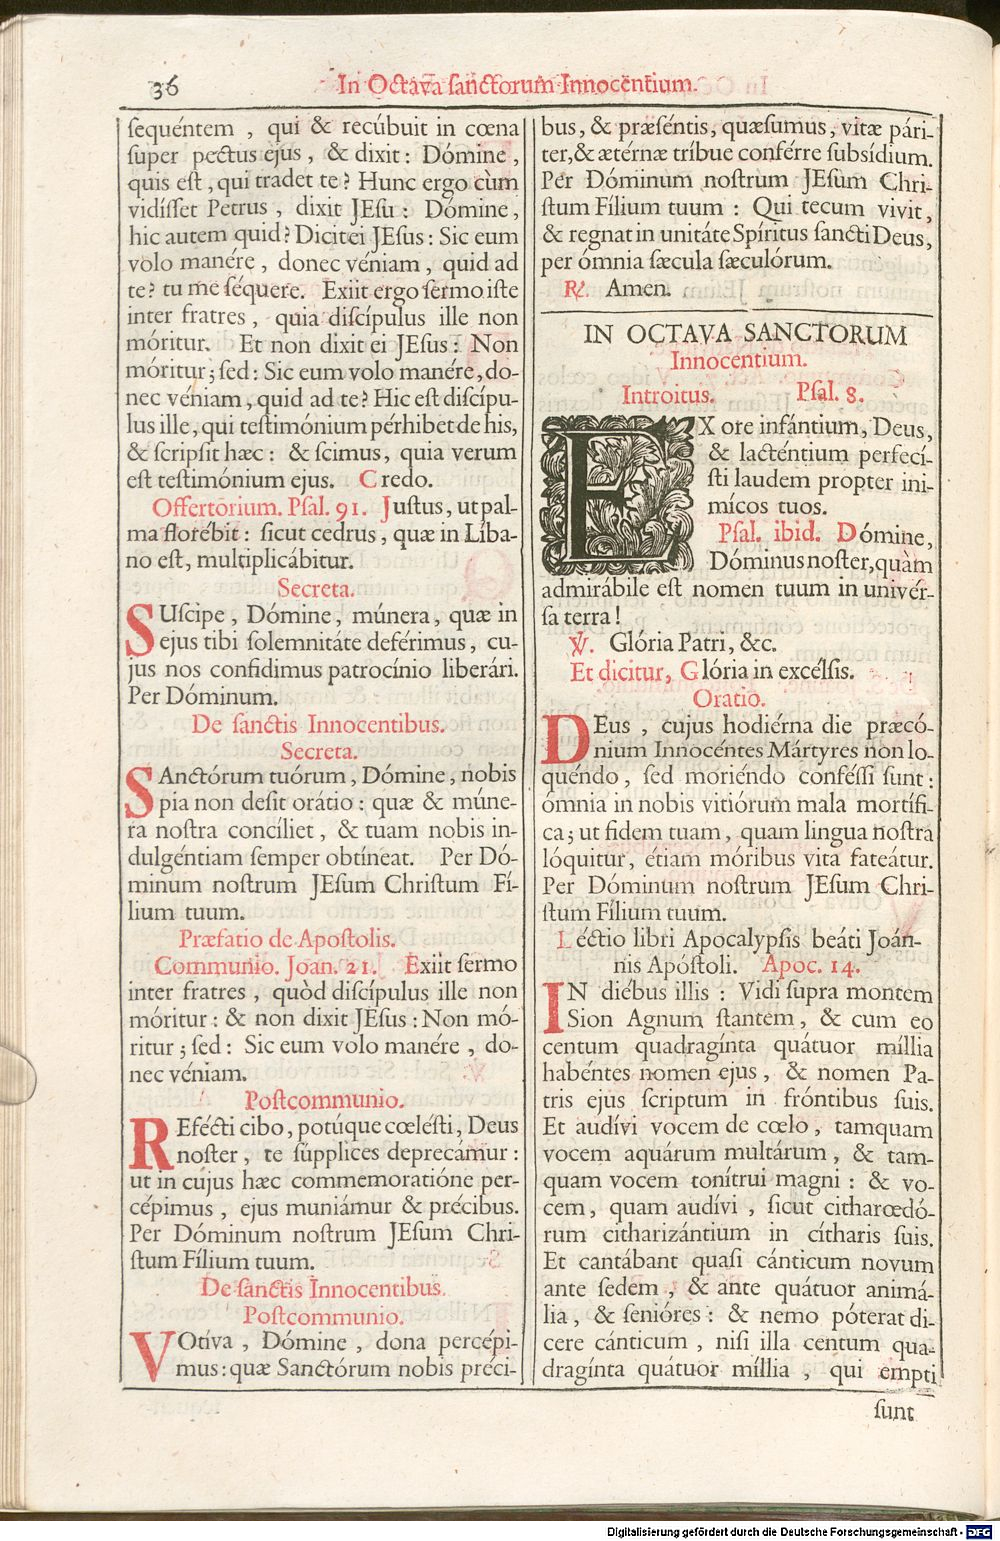 36
In Octava sanctorum Innocentium.
sequéntem , qui & recúbuit in cœna
super pectus ejus , & dixit : Dómine ,
quis est , qui tradet te ? Hunc ergo cùm
vidísset Petrus , dixit JEsu : Dómine ,
hic autem quid ? Dicit ei JEsus : Sic eum
volo manére , donec véniam , quid ad
te ? tu me séquere. Exiit ergo sermo iste
inter fratres , quia discípulus ille non
móritur. Et non dixit ei JEsus : Non
móritur ; sed : Sic eum volo manére, do-
nec véniam , quid ad te ? Hic est discípu-
lus ille , qui testimónium pérhibet de his,
& scripsit hæc : & scimus , quia verum
est testimónium ejus. Credo.
Offertorium. Psal. 91. Justus , ut pal-
ma florébit : sicut cedrus , quæ in Líba-
no est, multiplicábitur.
Secreta.
SUscipe , Dómine , múnera , quæ in
ejus tibi solemnitáte deférimus , cu-
jus nos confídimus patrocínio liberári.
Per Dóminum.
De sanctis Innocentibus.
Secreta.
SAnctórum tuórum , Dómine , nobis
pia non desit orátio : quæ & múne-
ra nostra concíliet , & tuam nobis in-
dulgéntiam semper obtíneat. Per Dó-
minum nostrum JEsum Christum Fí-
lium tuum.
Præfatio de Apostolis.
Communio. Joan. 21. Exiit sermo
inter fratres , quòd discípulus ille non
móritur : & non dixit JEsus : Non mó-
ritur ; sed : Sic eum volo manére , do-
nec véniam.
Postcommunio.
REfécti cibo , potúque cœlésti , Deus
noster , te súpplices deprecámur :
ut in cujus hæc commemoratióne per-
cépimus , ejus muniámur & précibus.
Per Dóminum nostrum JEsum Chri-
stum Fílium tuum.
De sanctis Innocentibus.
Postcommunio.
VOtíva , Dómine , dona percépi-
mus : quæ Sanctórum nobis préci-
bus , & præséntis , quæsumus , vitæ pári-
ter, & ætérnæ tríbue conférre subsídium.
Per Dóminum nostrum JEsum Chri-
stum Fílium tuum : Qui tecum vivit ,
& regnat in unitáte Spíritus sancti Deus,
per ómnia sæcula sæculórum.
℟. Amen.
IN OCTAVA SANCTORUM
Innocentium.
Introitus. Psal. 8.
EX ore infántium, Deus,
& lacténtium perfecí-
sti laudem propter ini-
mícos tuos.
Psal. ibid. Dómine,
Dóminus noster, quàm
admirábile est nomen tuum in univér-
sa terra !
℣. Glória Patri , &c.
Et dicitur, Glória in excélsis.
Oratio.
DEus , cujus hodiérna die præcó-
nium Innocéntes Mártyres non lo-
quéndo , sed moriéndo conféssi sunt :
ómnia in nobis vitiórum mala mortífi-
ca ; ut fidem tuam , quam lingua nostra
lóquitur , étiam móribus vita fateátur.
Per Dóminum nostrum JEsum Chri-
stum Fílium tuum.
Léctio libri Apocalypsis beáti Joán-
nis Apóstoli. Apoc. 14.
IN diébus illis : Vidi supra montem
Sion Agnum stantem , & cum eo
centum quadragínta quátuor míllia
habéntes nomen ejus , & nomen Pa-
tris ejus scriptum in fróntibus suis.
Et audívi vocem de cœlo , tamquam
vocem aquárum multárum , & tam-
quam vocem tonítrui magni : & vo-
cem , quam audívi , sicut citharœdó-
rum citharizántium in cítharis suis.
Et cantábant quasi cánticum novum
ante sedem , & ante quátuor animá-
lia , & senióres : & nemo póterat dí-
cere cánticum , nisi illa centum qua-
dragínta quátuor míllia , qui empti
sunt
Digitalisierung gefördert durch die Deutsche Forschungsgemeinschaft - DFG